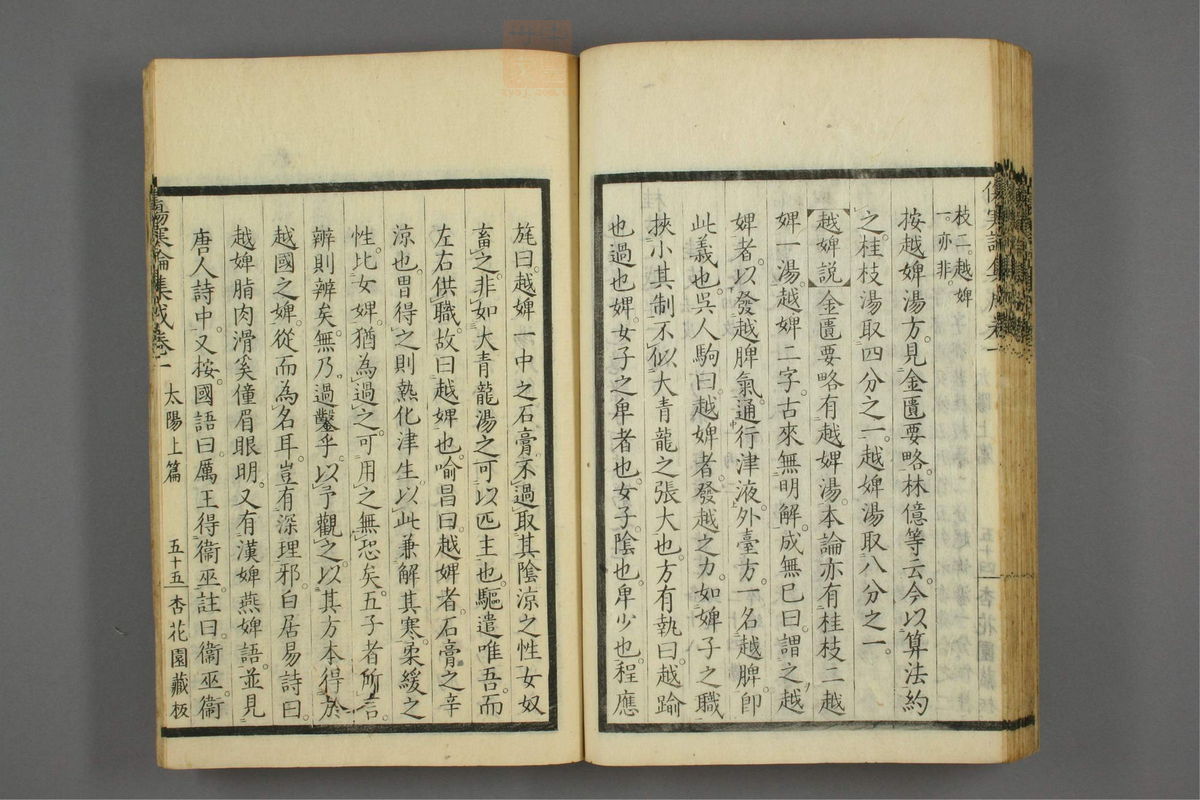 傷寒論集成卷一
五十四
杏花園藏板
枝二。越婢
一。亦非。
按越婢湯方。見金匱要略。林億等云。今以算法約
之。桂枝湯取四分之一。越婢湯取八分之一。
越婢説 金匱要略有越婢湯。本論亦有桂枝二越
婢一湯。越婢二字。古來無明解。成無已曰。謂之越
婢者。以發越脾氣。通行津液。外臺方。一名越脾。卽
此義也。吳人駒曰。越婢者。發越之力。如婢子之職
挾小其制。不似大青龍之張大也。方有執曰。越踰
也。過也。婢。女子之卑者也。女子。陰也。卑。少也。程應
旄曰。越婢一中之石膏。不過取其陰涼之性。女奴
畜之。非如大青龍湯之可以匹主也。驅遣唯吾。而
左右供職。故曰越婢也。喻昌曰。越婢者。石膏之辛
涼也。胃得之則熱化津生。以此兼解其寒。柔緩之
性。比女婢猶為過之。可用之無恐矣。五子者所言。
辨則辨矣。無乃過鑿乎。以予觀之。以其方本得於
越國之婢。從而為名耳。豈有深理邪。白居易詩曰。
越婢脂肉滑。奚僮眉眼明。又有漢婢燕婢語。並見
唐人詩中。又按。國語曰。厲王得衞巫。註曰。衞巫。衞
傷寒論集成卷一
太陽上篇
五十五
杏花園藏板